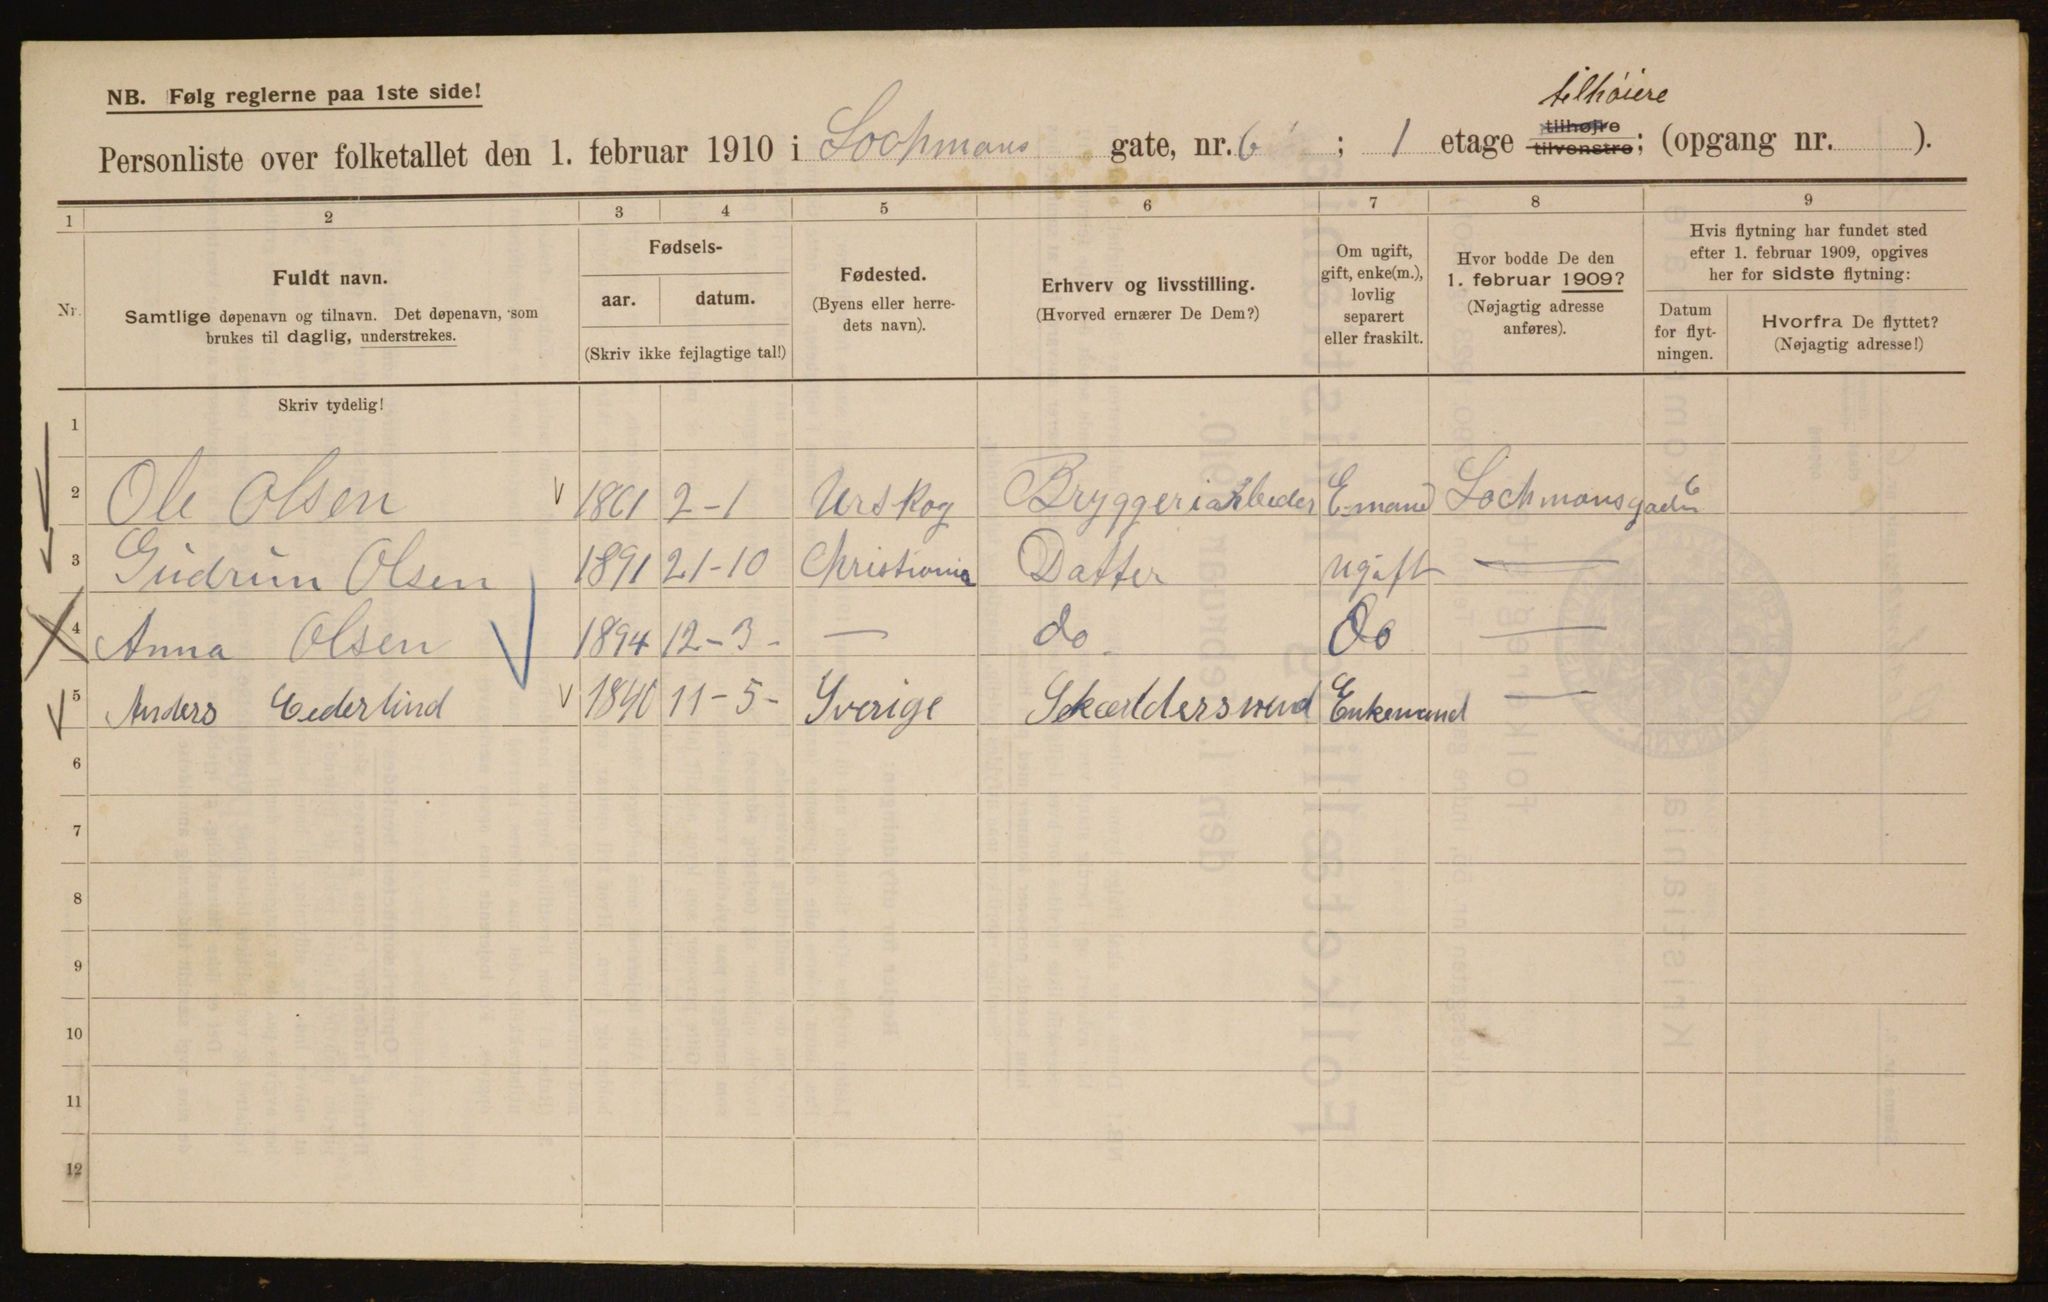 NB. Følg reglerne paa 1ste side!
tilhøiere
Personliste over folketallet den 1. februar 1910 i Lochmans gate, nr. 6 ; 1 etage tilhøjre tilvenstre; (opgang nr. ).
1 2 3 4 5 6 7 8 9
Nr.
Fuldt navn.
Samtlige døpenavn og tilnavn. Det døpenavn, som
brukes til daglig, understrekes.
Fødsels-
aar. datum.
(Skriv ikke fejlagtige tal!)
Fødested.
(Byens eller herre-
dets navn).
Erhverv og livsstilling.
(Hvorved ernærer De Dem?)
Om ugift,
gift, enke(m.),
lovlig
separert
eller fraskilt.
Hvor bodde De den
1. februar 1909?
(Nøjagtig adresse
anføres).
Hvis flytning har fundet sted
efter 1. februar 1909, opgives
her for sidste flytning:
Datum
for flyt-
ningen.
Hvorfra De flyttet?
(Nøjagtig adresse!)
Skriv tydelig!
1
2 Ole Olsen 1861 2-1 Urskog Bryggeriarbeder E.mand Lochmansgaden 6
3 Gudrun Olsen 1891 21-10 Christiania Datter ugift —
4 Anna Olsen 1894 12-3- — do Do —
5 Anders Cederlind 1840 11-5- Sverige Skræddersvend Enkemand —
6
7
8
9
10
11
12